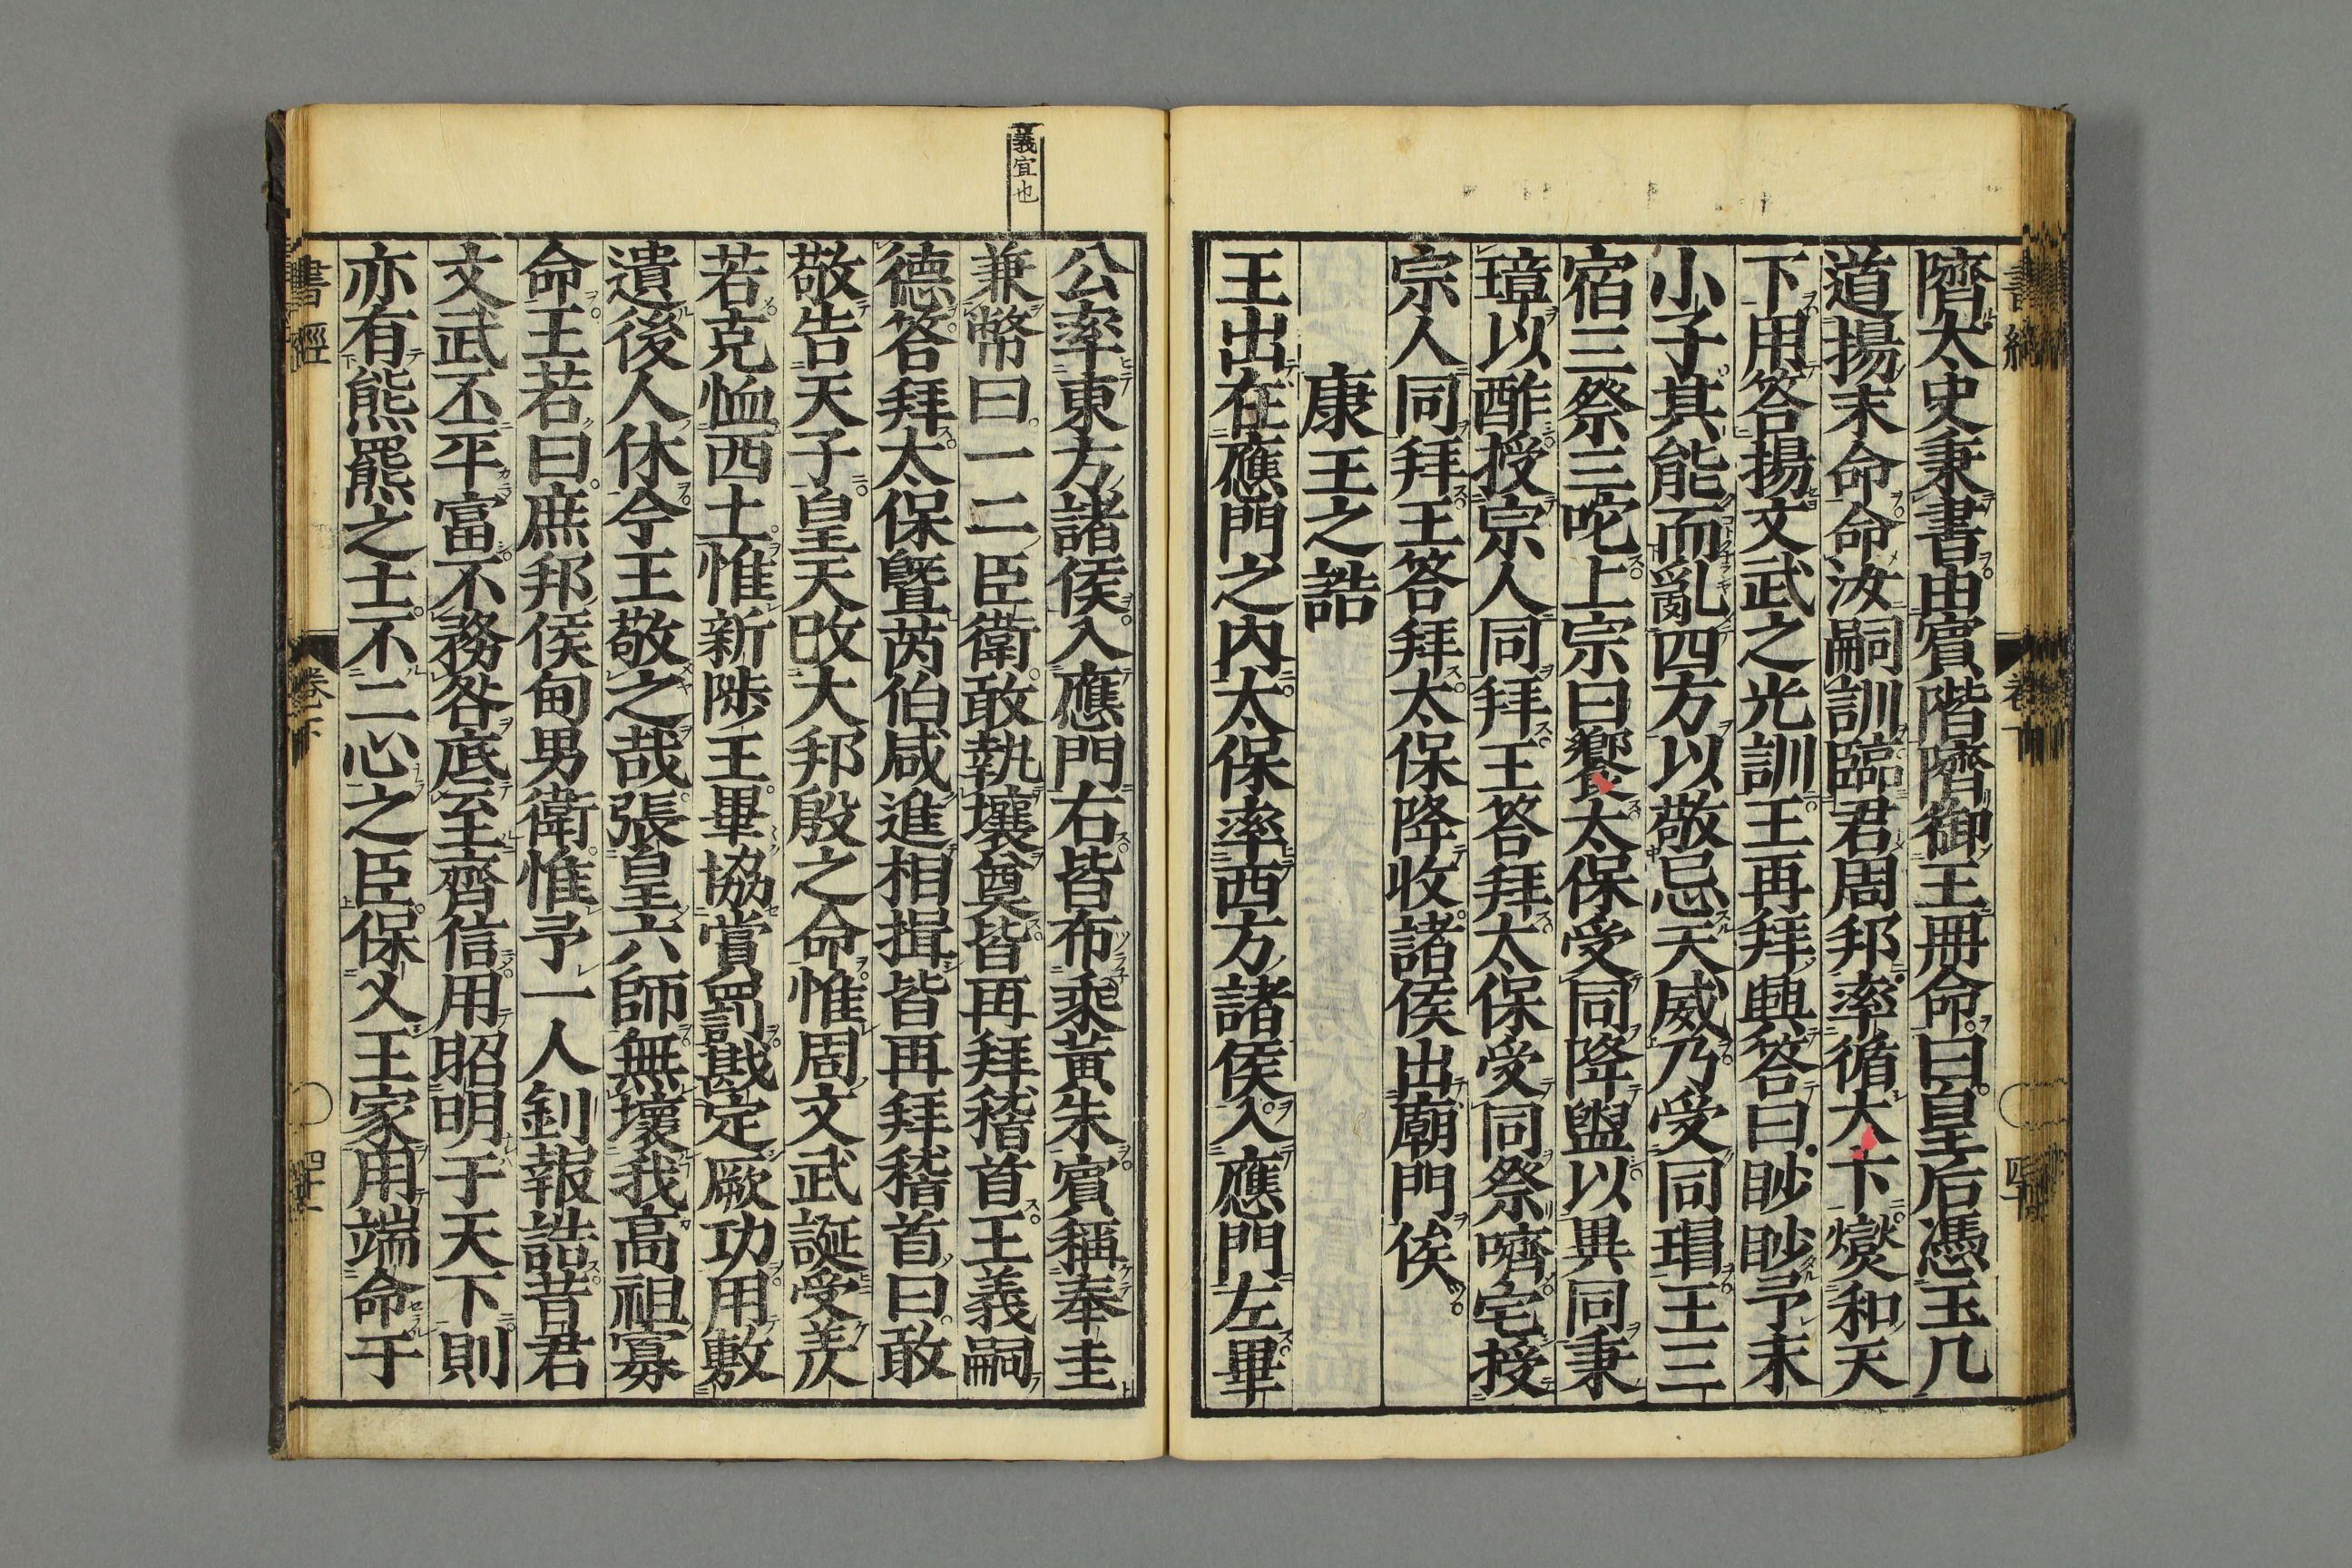 隮太史秉書由賓階隮御王冊命曰皇后憑玉几
道揚末命命汝嗣訓臨君周邦率循大卞燮和天
下用答揚文武之光訓王再拜興答曰眇眇予末
小子其能而亂四方以敬忌天威乃受同瑁王三
宿三祭三咤上宗曰饗太保受同降盥以異同秉
璋以酢授宗人同拜王答拜太保受同祭嚌宅授
宗人同拜王答拜太保降收諸侯出廟門俟
康王之誥
王出在應門之內太保率西方諸侯入應門左畢
義宜也
公率東方諸侯入應門右皆布乘黃朱賓稱奉圭
兼幣曰一二臣衛敢執壤奠皆再拜稽首王義嗣
德答拜太保暨芮伯咸進相揖皆再拜稽首曰敢
敬告天子皇天改大邦殷之命惟周文武誕受羑
若克恤西土惟新陟王畢協賞罰戡定厥功用敷
遺後人休今王敬之哉張皇六師無壞我高祖寡
命王若曰庶邦侯甸男衛惟予一人釗報誥昔君
文武丕平富不務咎底至齊信用昭明于天下則
亦有熊羆之士不二心之臣保乂王家用端命于
書經
卷下